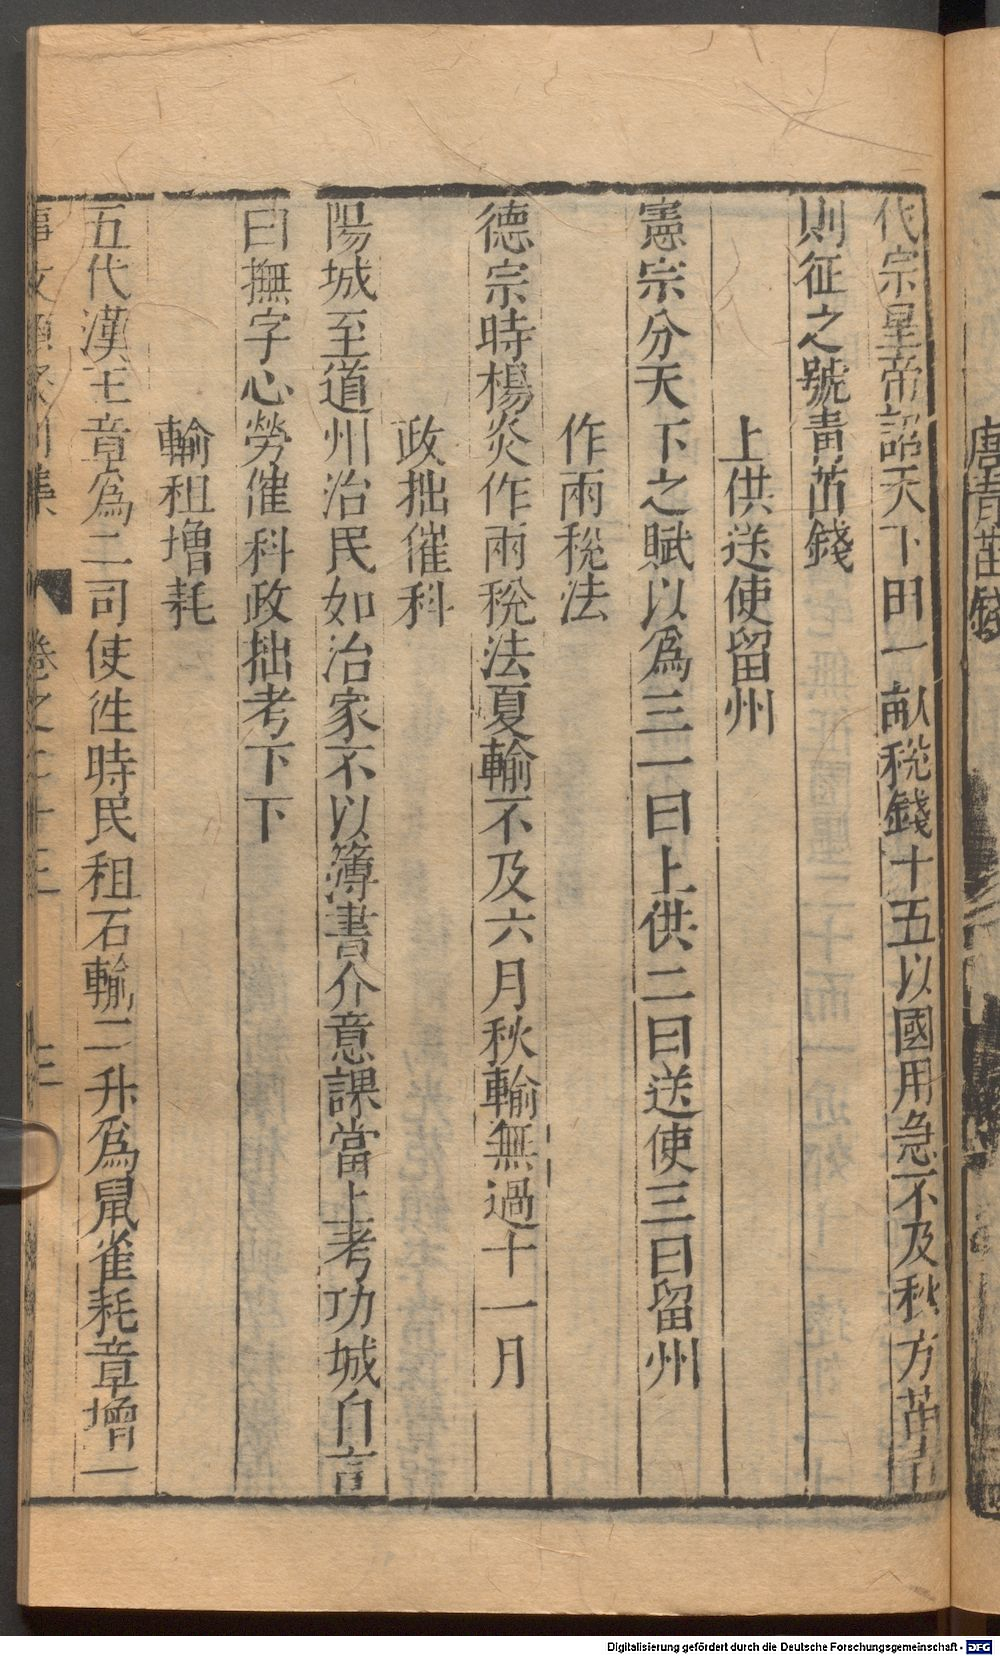 唐青苗錢
代宗皇帝詔天下田一畝稅錢十五以國用急不及秋方苗青
則征之號青苗錢
上供送使留州
憲宗分天下之賦以爲三一曰上供二曰送使三曰留州
作兩稅法
德宗時楊炎作兩稅法夏輸不及六月秋輸無過十一月
政拙催科
陽城至道州治民如治家不以簿書介意課當上考功城自言
曰撫字心勞催科政拙考下下
輸租增耗
五代漢王章爲二司使徃時民租石輸二升爲鼠雀耗章增一
事文類聚別集 卷之二十三 三
Digitalisierung gefördert durch die Deutsche Forschungsgemeinschaft - DFG